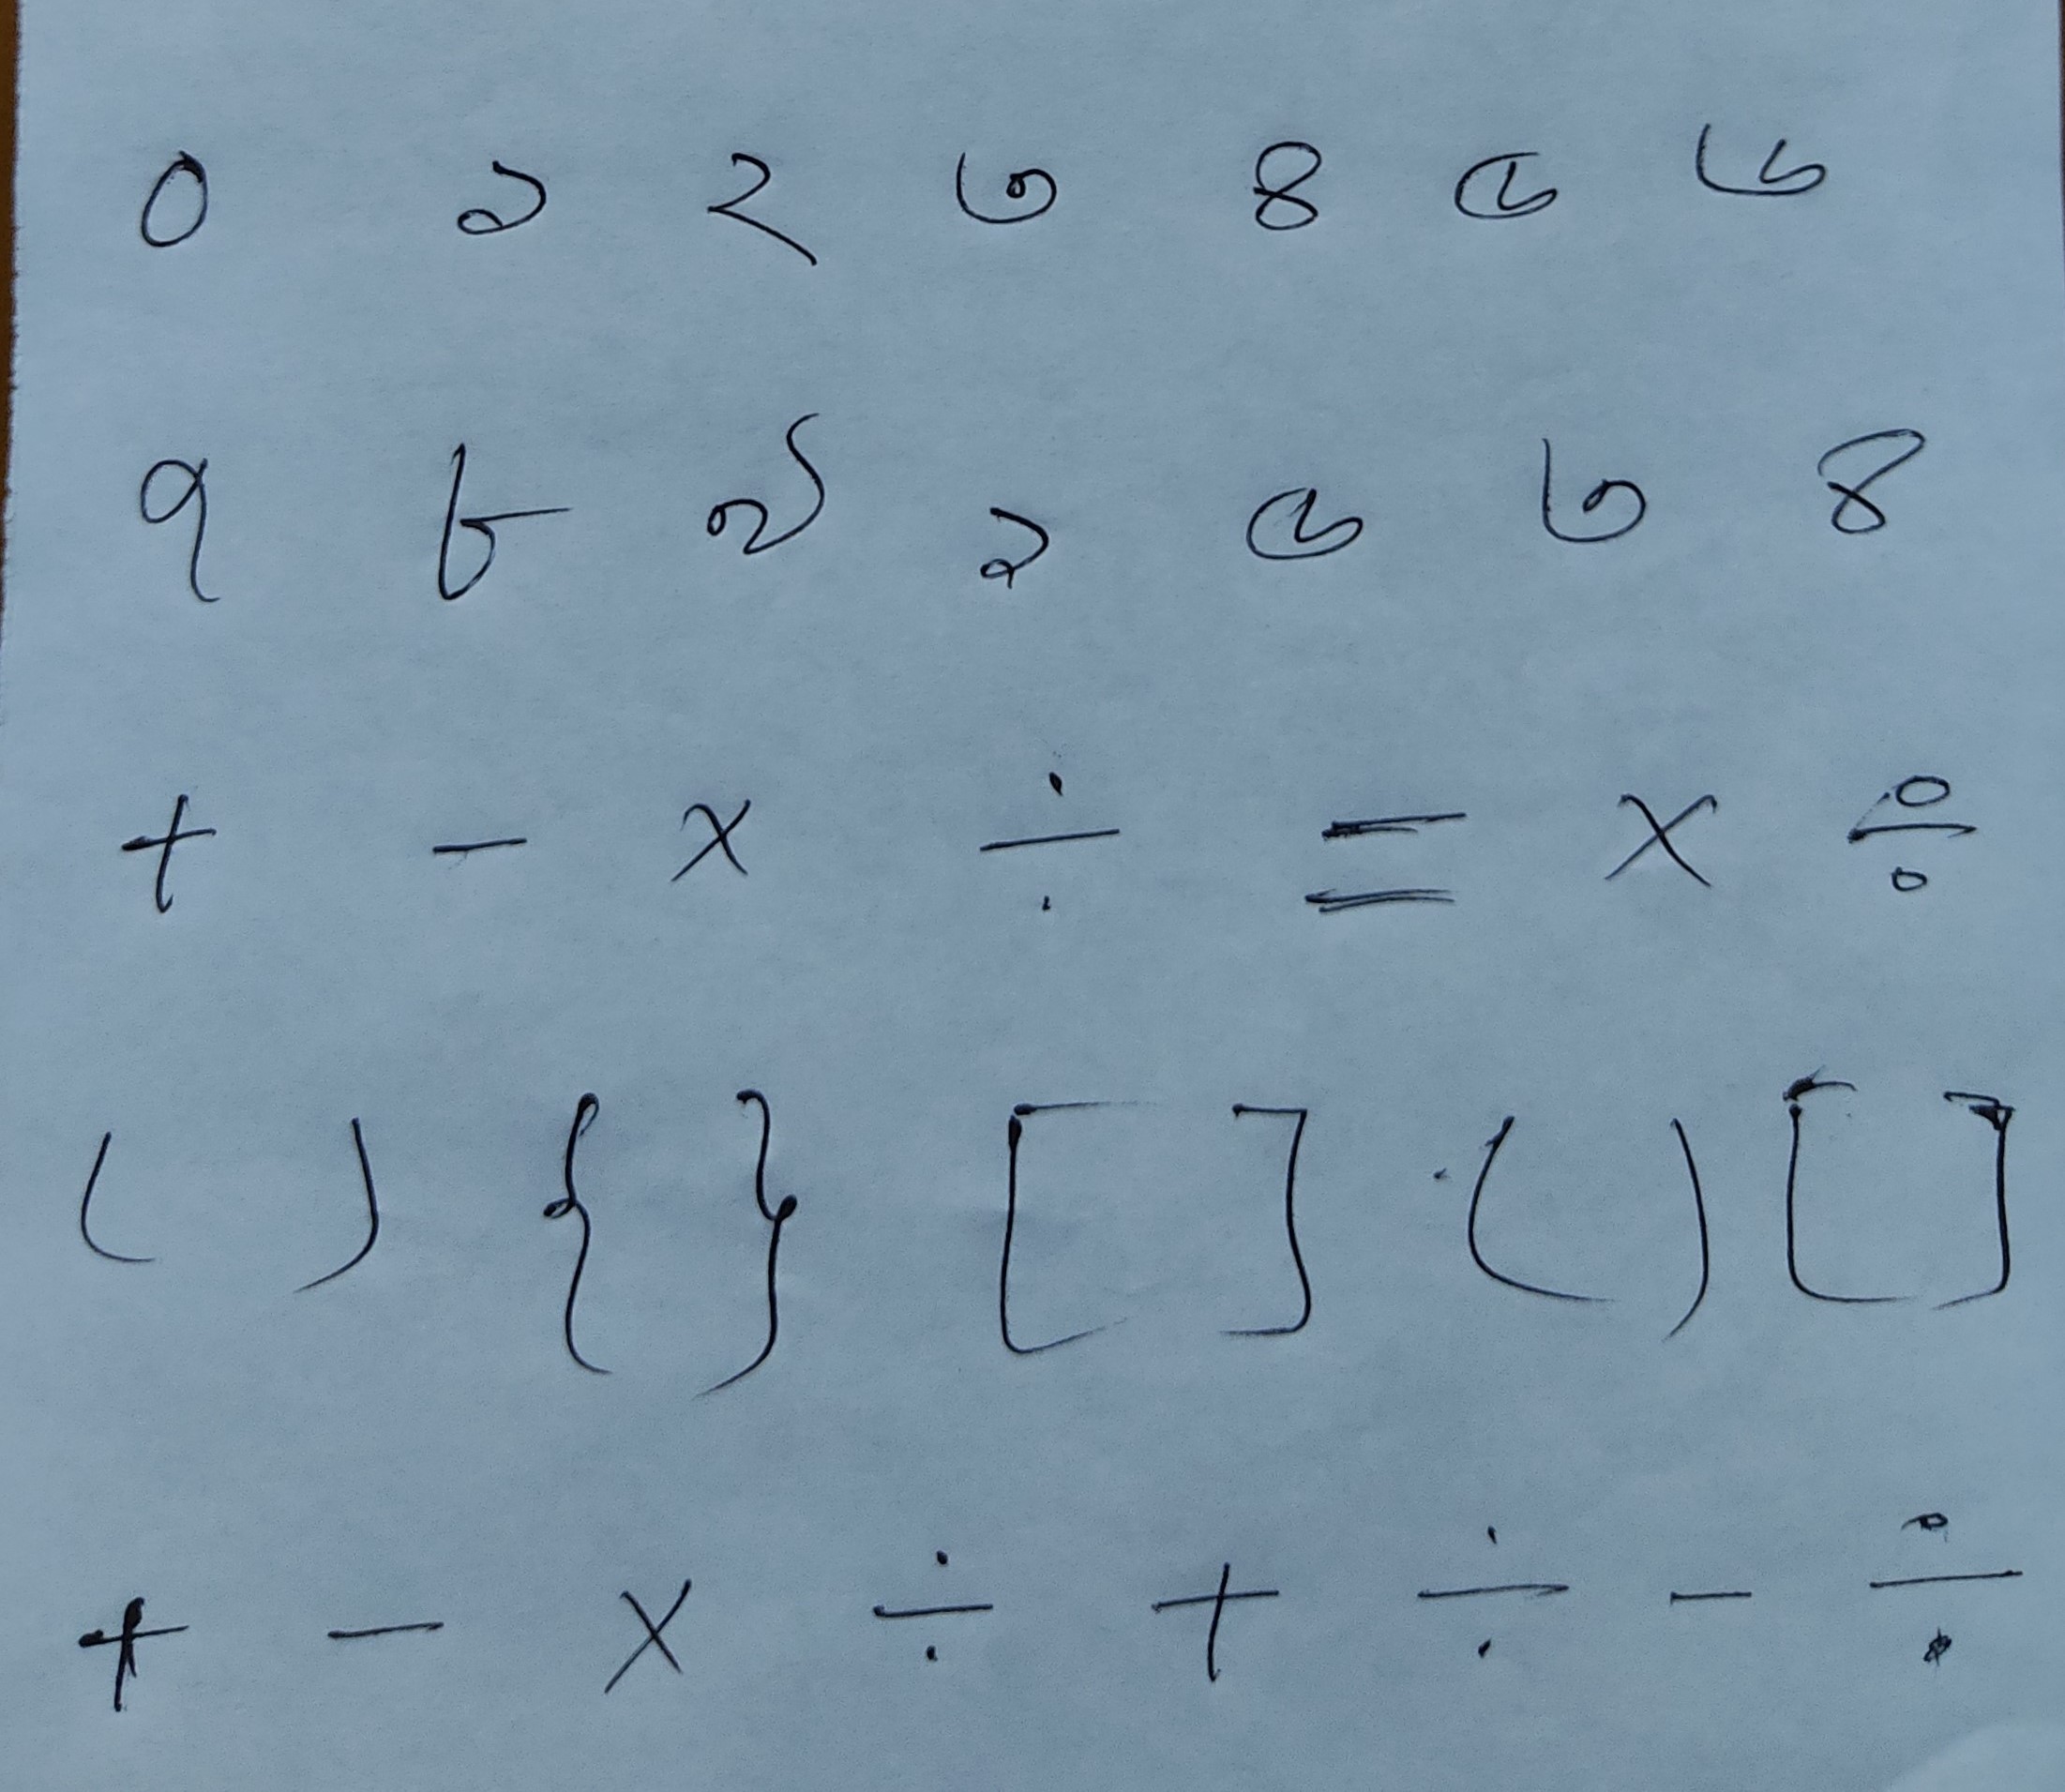 ০ ১ ২ ৩ ৪ ৫ ৬
৭ ৮ ৯ ১ ৫ ৩ ৪
+ - × ÷ = × ÷
( ) { } [ ] ( ) [ ]
+ - × ÷ + ÷ - ÷